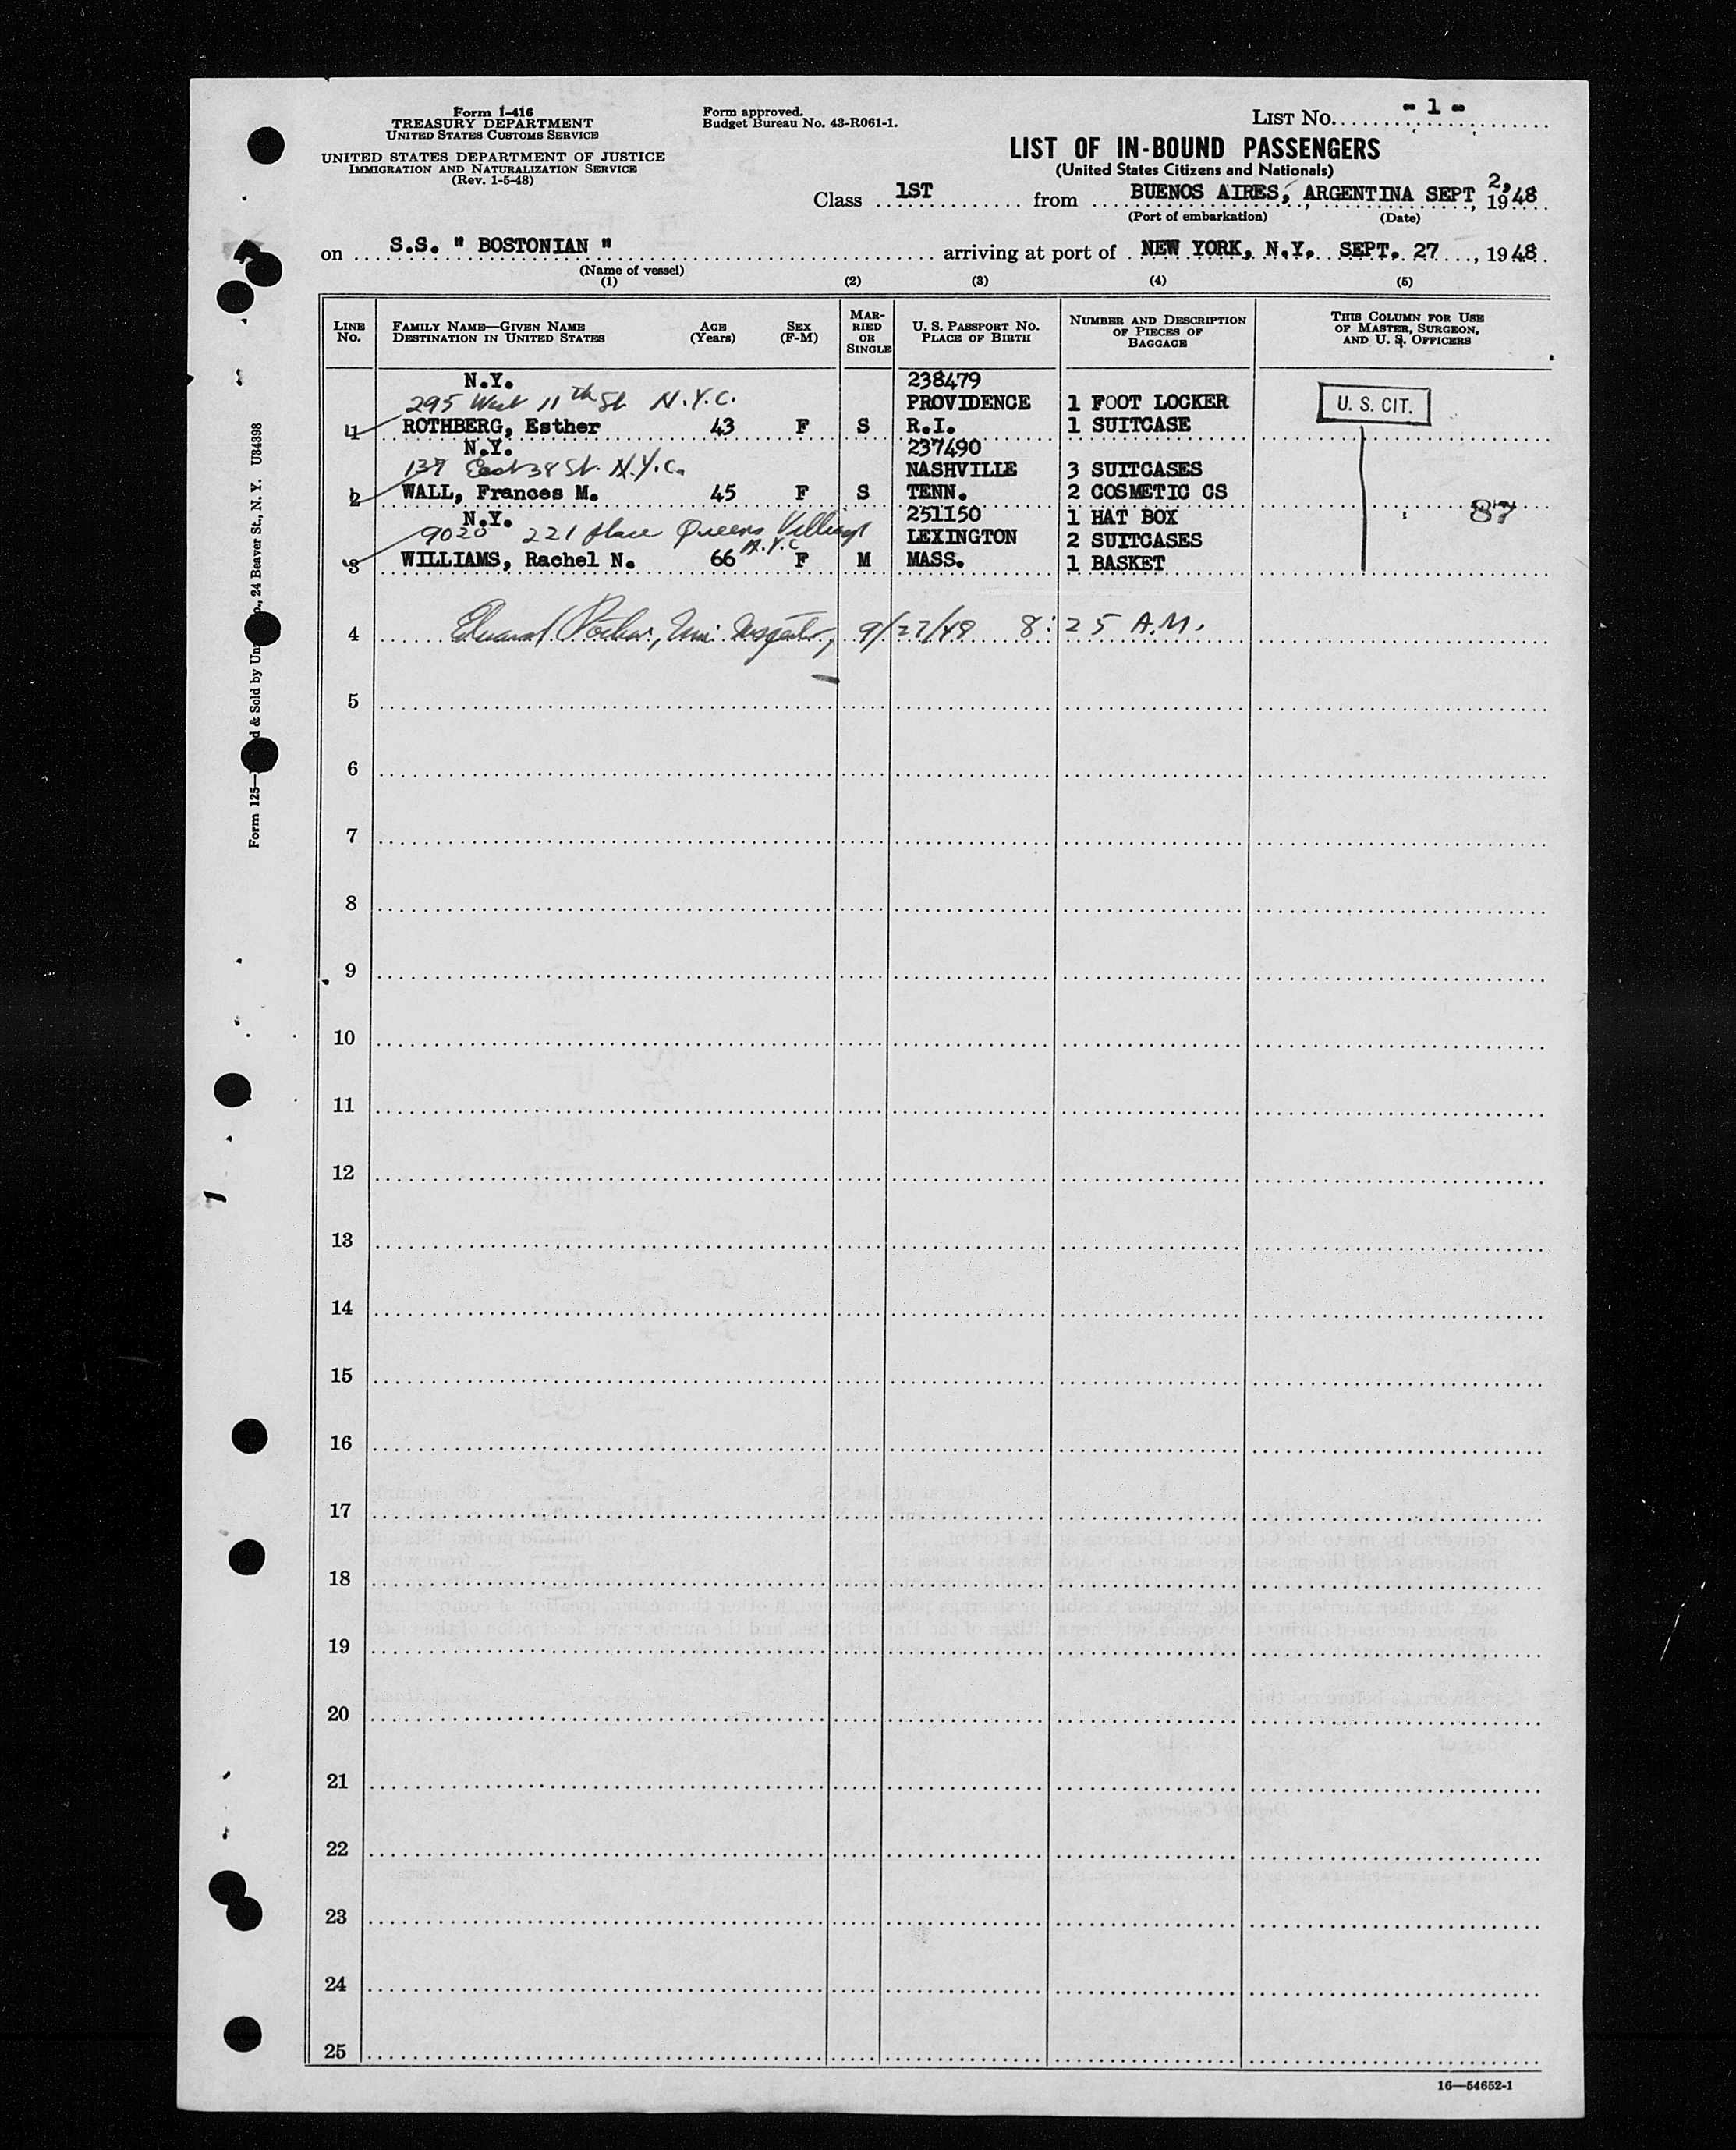 Form I-416
TREASURY DEPARTMENT
UNITED STATES CUSTOMS SERVICE
UNITED STATES DEPARTMENT OF JUSTICE
IMMIGRATION AND NATURALIZATION SERVICE
(Rev. 1-5-48)
Form approved.
Budget Bureau No. 43-R061-1.
LIST No. - 1 -
LIST OF IN-BOUND PASSENGERS
(United States Citizens and Nationals)
Class 1ST from BUENOS AIRES, ARGENTINA SEPT 2, 1948
(Port of embarkation) (Date)
on S.S. " BOSTONIAN " arriving at port of NEW YORK, N.Y. SEPT. 27, 1948
(Name of vessel)
(1) (2) (3) (4) (5)
LINE No. FAMILY NAME—GIVEN NAME DESTINATION IN UNITED STATES AGE (Years) SEX (F-M) MARRIED OR SINGLE U. S. PASSPORT No. PLACE OF BIRTH NUMBER AND DESCRIPTION OF PIECES OF BAGGAGE THIS COLUMN FOR USE OF MASTER, SURGEON, AND U. S. OFFICERS
N.Y. 238479
295 West 11th St. N.Y.C. PROVIDENCE 1 FOOT LOCKER U. S. CIT.
1 ROTHBERG, Esther 43 F S R.I. 1 SUITCASE
N.Y. 237490
137 East 38 St. N.Y.C. NASHVILLE 3 SUITCASES
2 WALL, Frances M. 45 F S TENN. 2 COSMETIC CS
N.Y. 251150 1 HAT BOX 87
9020 221 place Queens Village N.Y.C LEXINGTON 2 SUITCASES
3 WILLIAMS, Rachel N. 66 F M MASS. 1 BASKET
4 9/27/48 8:25 A.M.
5
6
7
8
9
10
11
12
13
14
15
16
17
18
19
20
21
22
23
24
25
16—54652-1
Form 125— & Sold by 24 Beaver St., N. Y. U34398